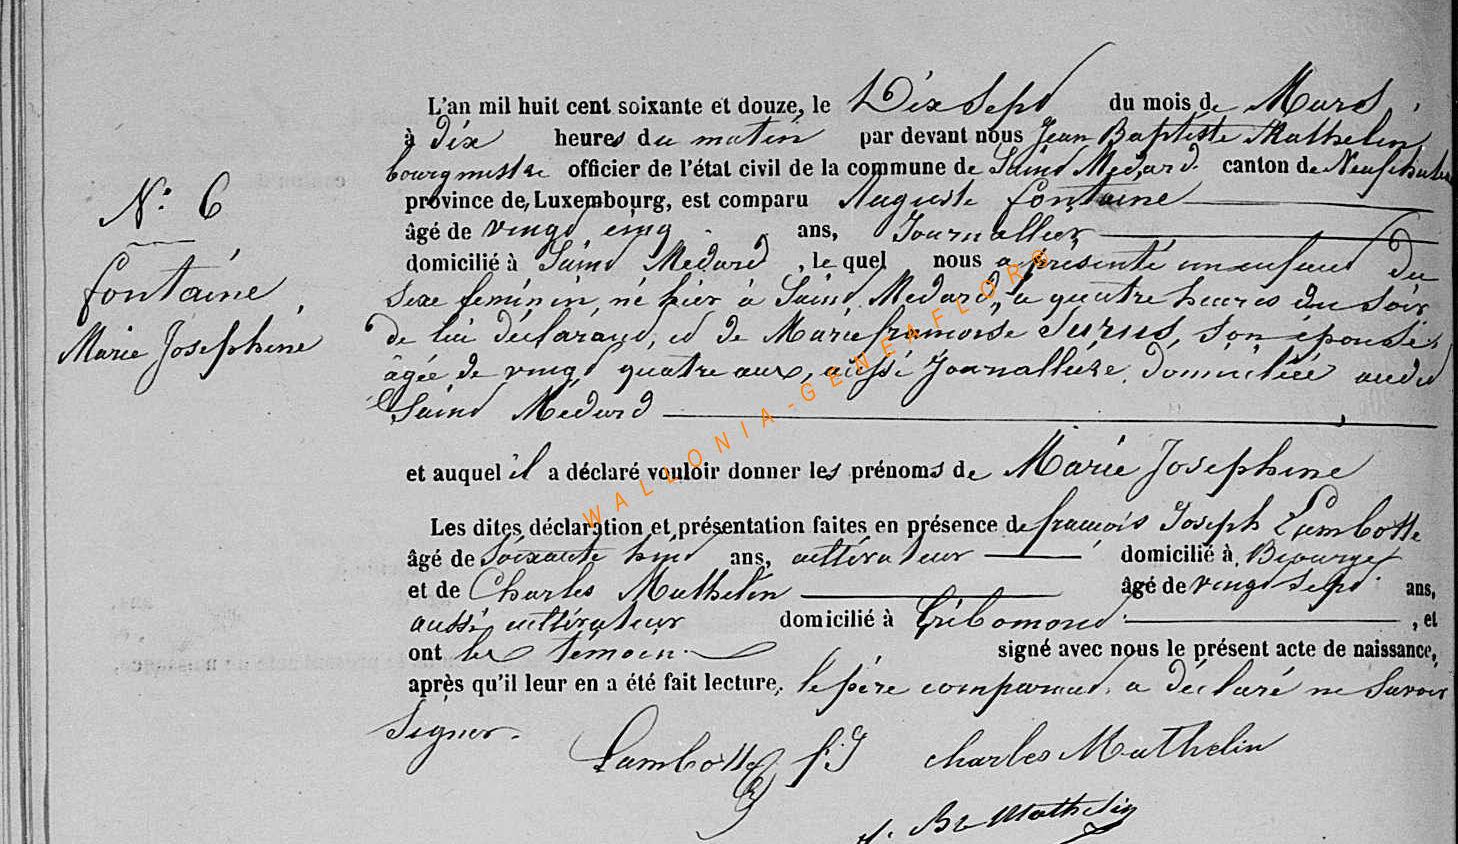 N.° 6
fontaine
Marie Josephine
L'an mil huit cent soixante et douze, le Dix Sept du mois de Mars,
à dix heures du matin par devant nous Jean Baptiste Mathelin
bourgmestre officier de l'état civil de la commune de Saint Médard canton de Neufchateau
province de Luxembourg, est comparu Auguste fontaine
âgé de vingt cinq ans, Journallier
domicilié à Saint Medard, le quel nous a présenté un enfant Du
Sexe feminin né hier à Saint Medard, à quatre heures du Soir
de lui déclarant, et de Marie françoise Surus, Son épouse,
âgée de vingt quatre ans, aussi Journallière, domiciliée audit
Saint Medard
et auquel il a déclaré vouloir donner les prénoms de Marie Josephine
Les dites déclaration et présentation faites en présence de françois Joseph Lambotte
âgé de Soixante huit ans, cultivateur domicilié à Biourge
et de Charles Mathelin âgé de vingt Sept ans,
aussi cultivateur domicilié à Gribomont, et
ont les temoin signé avec nous le présent acte de naissance,
après qu'il leur en a été fait lecture, le père comparant a déclaré ne Savoir
Signer.
Lambotte f. J Charles Mathelin
J. Bte Mathelin
WALLONIA-GENEAFLORE